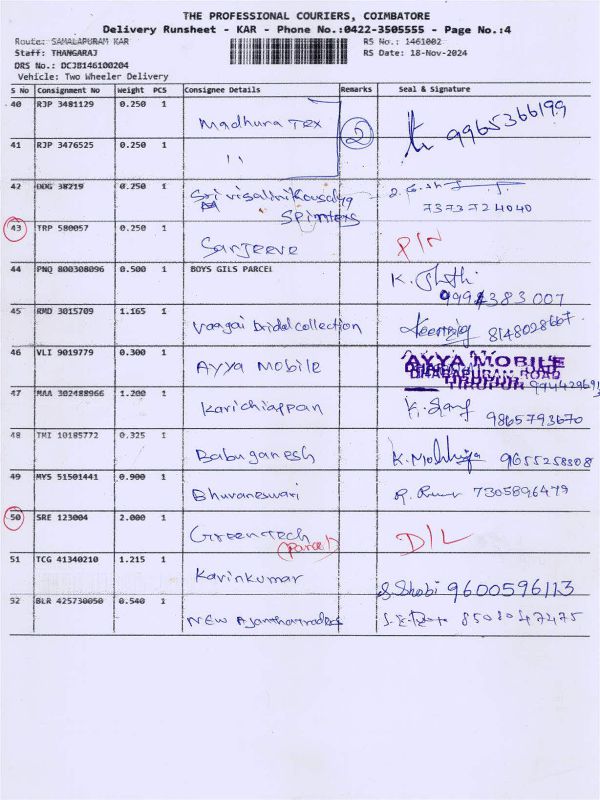 THE PROFESSIONAL COURIERS, COIMBATORE
Delivery Runsheet - KAR - Phone No.:0422-3505555 - Page No.:4
Route: SAMALAPURAM KAR RS No.: 1461002
Staff: THANGARAJ RS Date: 18-Nov-2024
DRS No.: DCJB146100204
Vehicle: Two Wheeler Delivery
S No Consignment No Weight PCS Consignee Details Remarks Seal & Signature
40 RJP 3481129 0.250 1 Madhura Tex 2 9965366199
41 RJP 3476525 0.250 1 ''
42 DDG 38219 0.250 1 Srivisalini Kousalya
Spintexs 7373724040
43 TRP 580057 0.250 1 Sanjeeve PIN
44 PNQ 800308096 0.500 1 BOYS GILS PARCEL K.
9994383007
45 RMD 3015709 1.165 1 Vaagai bridal collection 8148028667
46 VLI 9019779 0.300 1 AYYA MOBILE AYYA MOBILE
DHARAPURAM ROAD
TIRUPUR
47 MAA 302488966 1.200 1 Karichiappan 9865793670
48 TMI 10185772 0.325 1 Babu ganesh 9655258808
49 MYS 51501441 0.900 1 Bhuvaneswari 7305896479
50 SRE 123004 2.000 1 Greentech
(Parcel) D/L
51 TCG 41340210 1.215 1 Kavinkumar S. Shobi 9600596113
52 BLR 425730050 0.540 1 New Ajantha traders 8508047475